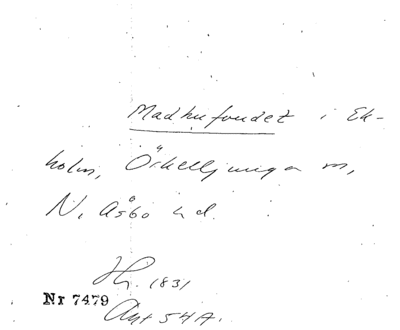 Madhusfundet i Ek-
holm, Örkelljunga m,
N. Åsbo hd.
Hr. 1831
Nr 7479
Ant 54A.